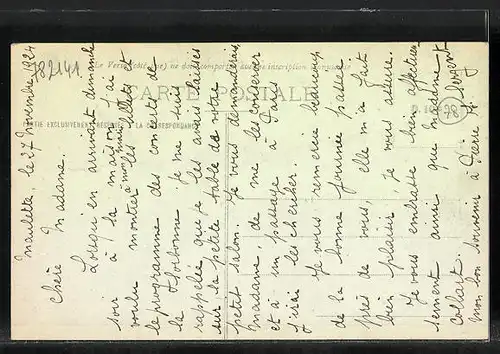 82141
Maulette, le 27 Novembre 1924
Chère Madame,
Lorsqu'en arrivant dimanche
soir à la maison, j'ai
voulu montrer à mon mari les billets et
le programme des concerts de
la Sorbonne, je me suis
rappelée que je les avais laissés
sur la petite table de votre
petit salon. Je vous demanderais
madame, de me les conserver
et à un passage à Paris
j'irai les chercher.
Je vous remercie beaucoup
de la bonne journée passée
près de vous, elle m'a fait
bien plaisir, je vous assure.
Je vous embrasse bien affectueu
sement ainsi que madame
Collart.
mon bon souvenir à Pierre
CARTE POSTALE
PARTIE EXCLUSIVEMENT RÉSERVÉE À LA CORRESPONDANCE
78